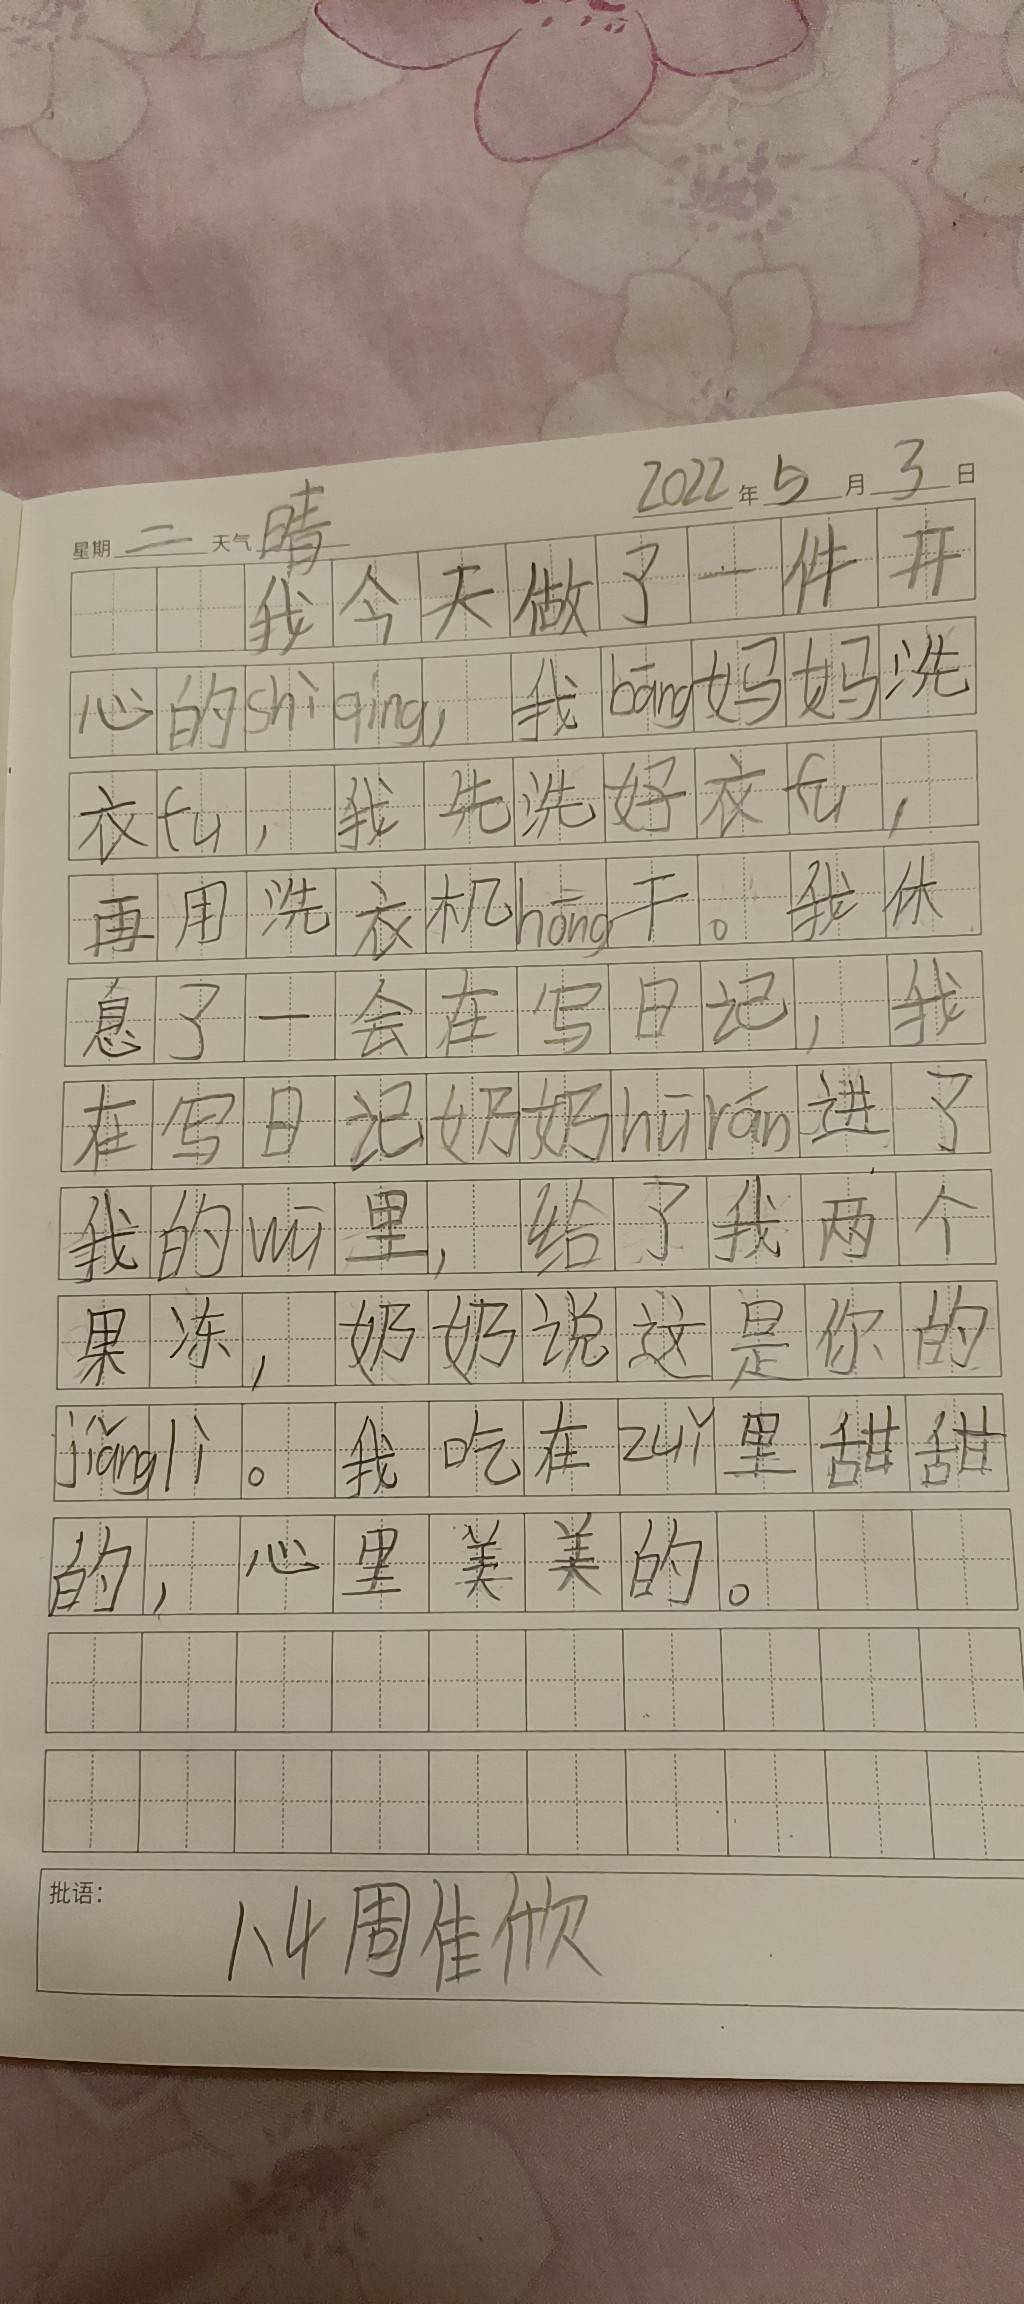 2022年5月3日
星期二 天气晴
我今天做了一件开
心的shì qing，我bāng妈妈洗
衣fu，我先洗好衣fu，
再用洗衣机hōng干。我休
息了一会在写日记，我
在写日记奶奶hūrán进了
我的wū里，给了我两个
果冻，奶奶说这是你的
jiǎnglì。我吃在zuǐ里甜甜
的，心里美美的。
批语：
1.4周佳欣